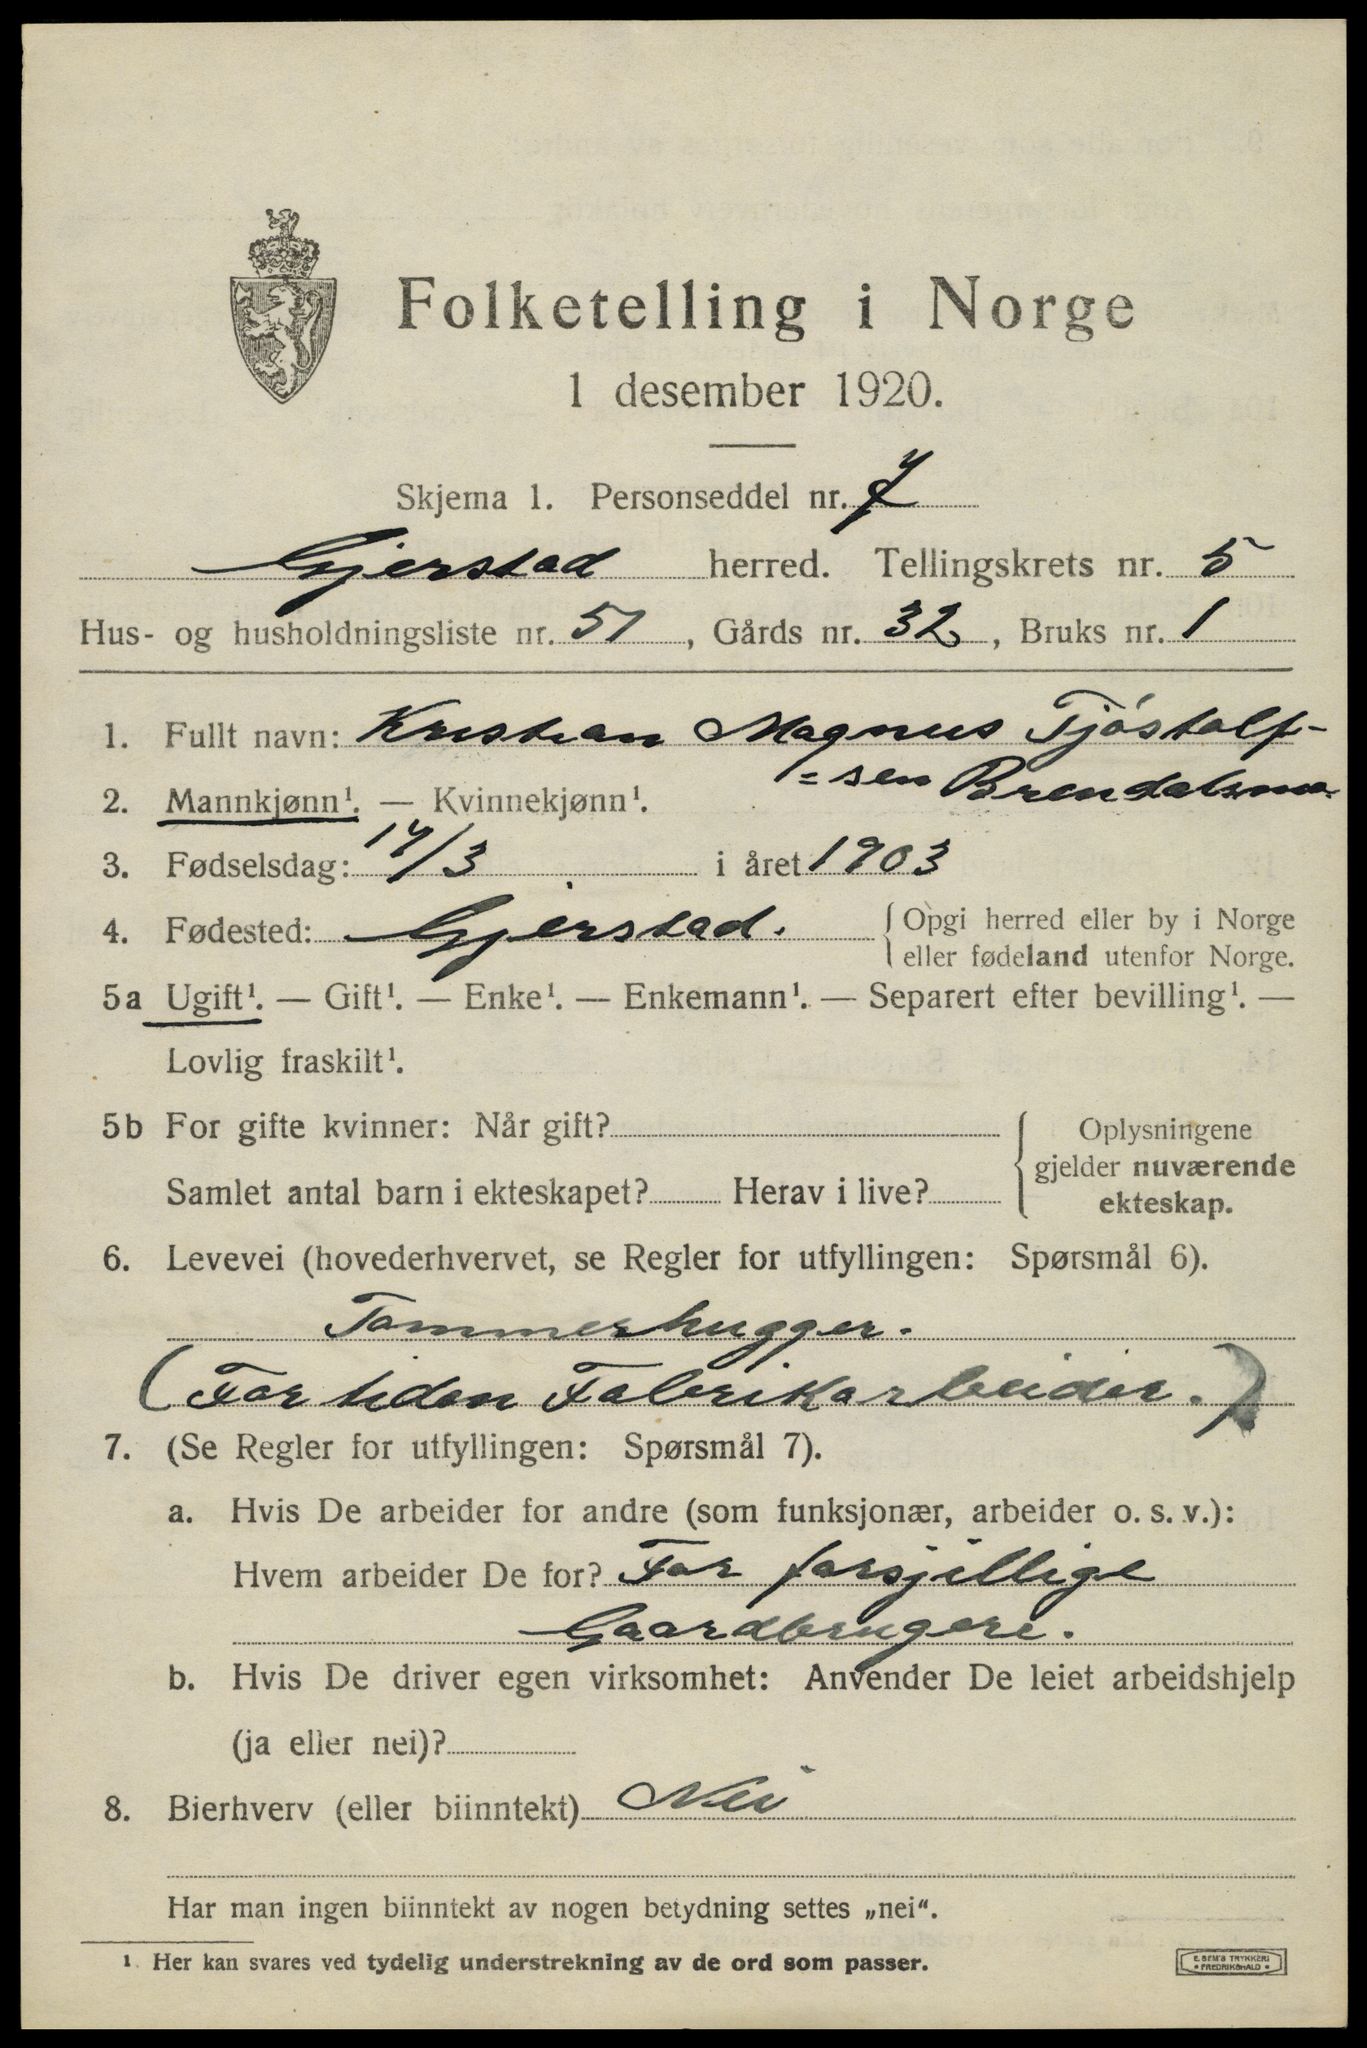 Folketelling i Norge
1 desember 1920.
Skjema 1. Personseddel nr. 7
Gjerstad herred. Tellingskrets nr. 5
Hus- og husholdningsliste nr. 51, Gårds nr. 32, Bruks nr. 1
1. Fullt navn: Kristian Magnus Tjøstolf-
=sen Brendalsmo.
2. Mannkjønn¹. — Kvinnekjønn¹.
3. Fødselsdag: 14/3 i året 1903
4. Fødested: Gjerstad. { Opgi herred eller by i Norge
eller fødeland utenfor Norge.
5a Ugift¹. — Gift¹. — Enke¹. — Enkemann¹. — Separert efter bevilling¹. —
Lovlig fraskilt¹.
5b For gifte kvinner: Når gift?
Samlet antal barn i ekteskapet? Herav i live?
Oplysningene
gjelder nuværende
ekteskap.
6. Levevei (hovederhvervet, se Regler for utfyllingen: Spørsmål 6).
Tømmerhugger.
(For tiden Fabrikarbeider.)
7. (Se Regler for utfyllingen: Spørsmål 7).
a. Hvis De arbeider for andre (som funksjonær, arbeider o. s. v.):
Hvem arbeider De for? For forsjillige
Gaardbrugere.
b. Hvis De driver egen virksomhet: Anvender De leiet arbeidshjelp
(ja eller nei)?
8. Bierhverv (eller biinntekt) Nei
Har man ingen biinntekt av nogen betydning settes „nei“.
¹ Her kan svares ved tydelig understrekning av de ord som passer.
E. SEM'S TRYKKERI
• FREDRIKSHALD •